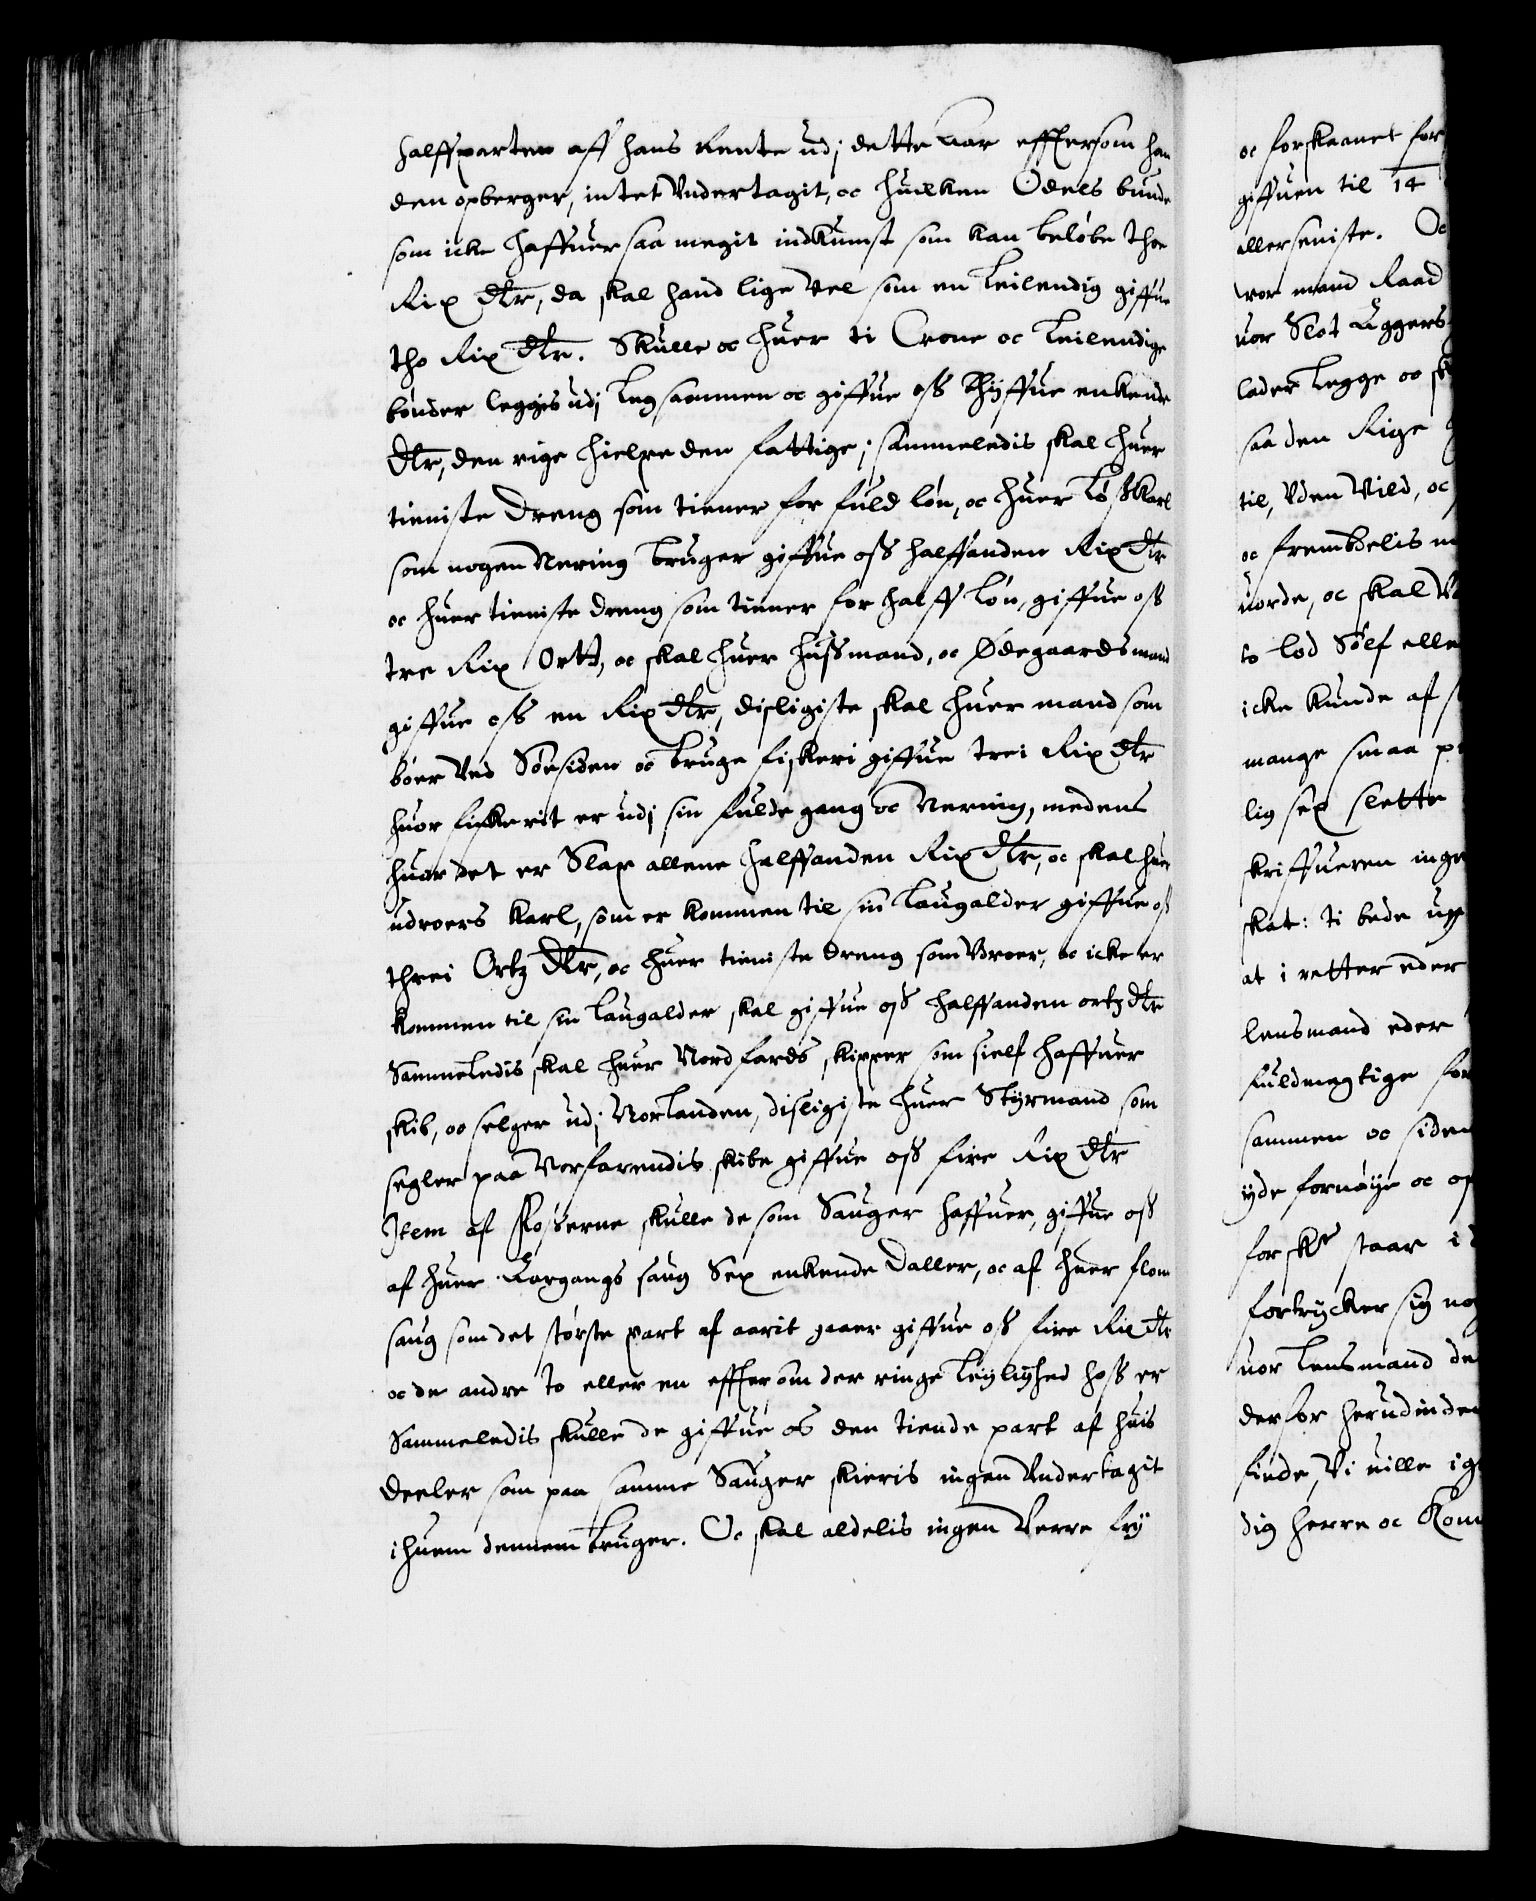 halffparten aff hans Rente udj dette Aar effterson han
den opberger, intet Vndertagit, oc huilken Odels bunde
som icke haffuer saa megit indkumst som kan beløbe thoe
Rix dlr, da skal hand lige Vel som en leilending giffue
tho Rix dlr. Skulle oc huer ti Crone oc leilendige
bønder leggis udj leg sammen oc giffue oss thiffue enkende
dlr, den rige hielpe den fattige; sammeledis skal huer
tieniste dreng som tiener for fuld løn, oc huer løsskarl
som nogen Nering bruger giffue oss halffanden Rix dlr
oc huer tieniste dreng som tiener for halff løn, giffue oss
tre Rix Ortt, oc skal huer hussmand, oc Ødegaardsmand
giffue oss en Rix dlr, disligiste skal huer mand som
boer Ved Søesiden oc bruge fiskeri giffue trei Rix dlr
huor fiskerit er udj sin fulde gang oc Nering, medens
huor det er Slap allene halffanden Rix dlr, oc skal huer
udroers karl, som er kommen til sin laugalder giffue oss
threi Ortz dlr, oc huer tieniste dreng som Vdroer, oc icke er
kommen til sin laugalder skal giffue oss halffanden ortz dlr
Sammeledis skal huer Nordfards skipper som sielf haffuer
skib, oc selger udj Norlanden, disligiste huer Styrmand som
segler paa Norfarendis skibe giffue oss fire Rix dlr
Item af Fosserne skulle de som Sauger haffuer, giffue oss
af huer Aargangs saug Sex enkende daller, oc af huer flom
saug som det største part af aarit gaaer giffue oss fire Rix dlr
oc de andre to eller en effter som der ringe leylighed hoss er
Sammeledis skulle de giffue os den tiende part af huis
deeler som paa samme Sauger skieris ingen Undertagit
i huem dennem bruger. Oc skal aldelis ingen Verre fry
oc forskaanet for
giffuen til 14
allerseniste. Oc
vor mand Raad
uor Slot Aggers
lader legge oc sk
saa den Rige
til, Vden Vild, oc
oc frembdelis m
uorde, oc skal
to lod Sølf elle
icke kunde af
mange smaa
lig sex slette
skriffueren inge
skat: ti bede
at i retter eder
lensmand eder
fuldmegtige for
sammen oc siden
yde fornøye oc
for skr staar i
fortrycker sig
uor lensmand de
derfor herudinden
finde, Vi uille
dig herre oc Kon